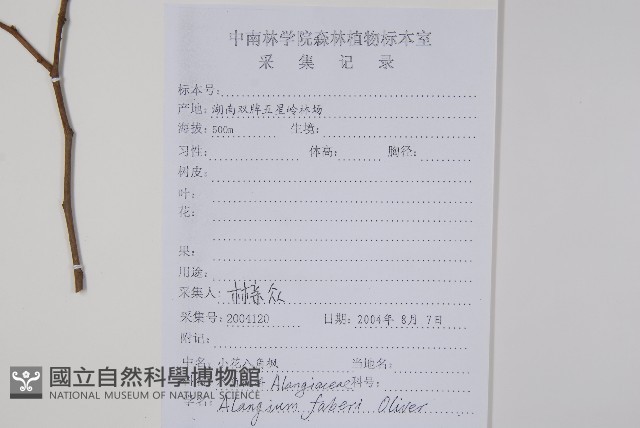 中南林学院森林植物标本室
采集记录
标本号:
产地: 湖南双牌五星岭林场
海拔: 500m 生境:
习性: 体高: 胸径:
树皮:
叶:
花:
果:
用途:
采集人:
采集号: 2004120 日期: 2004年 8月 7日
附记:
中名: 小花八角枫 当地名:
Alangiaceae 科号:
学名: Alangium faberi Oliver
國立自然科學博物館
NATIONAL MUSEUM OF NATURAL SCIENCE